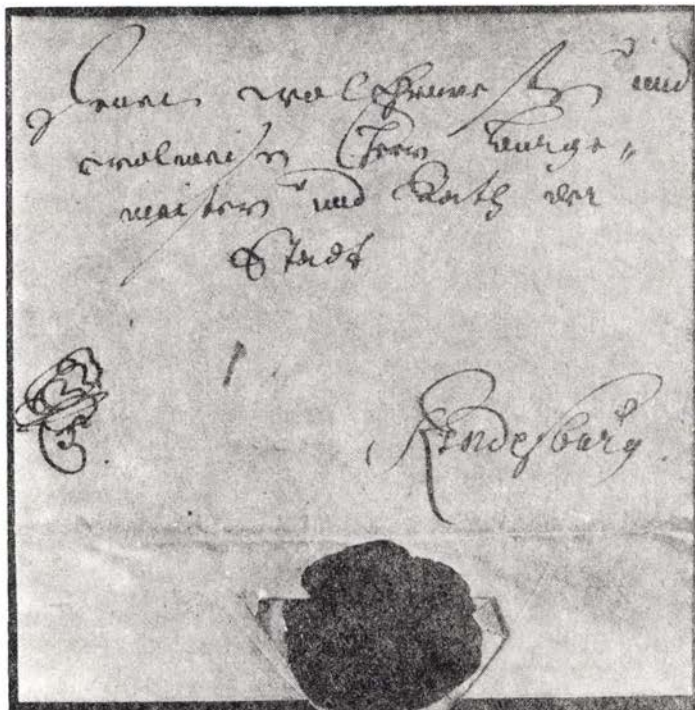 Denen wolEhrenvesten und
wolweisen Herrn Burge„
meistern und Rath der
Stadt
Rendesburg